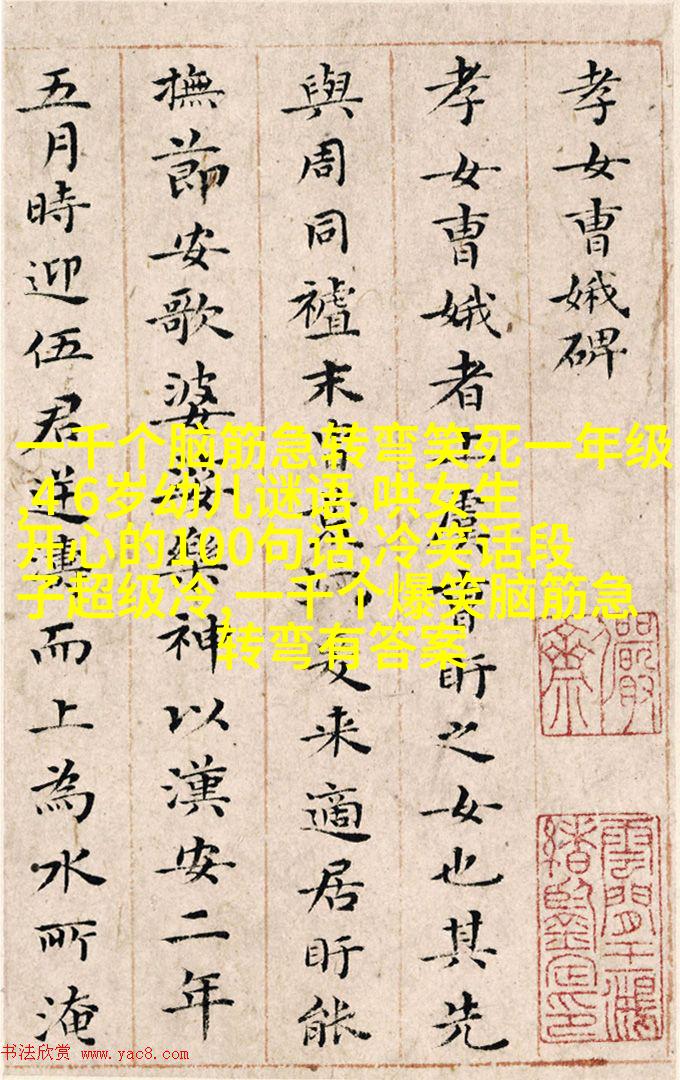 孝女曺娥碑
孝女曺娥者上虞曺盱之女也其先
與周同末来適居盱能
撫節安歌婆娑樂神以漢安二年
五月時迎伍君逆濤而上為水所淹
一千个脑筋急转弯笑死一年级
,4-6岁幼儿谜语,哄女生
开心的100句话,冷笑话段
子超级冷,一千个爆笑脑筋急
转弯有答案
书法欣赏 www.yac8.com